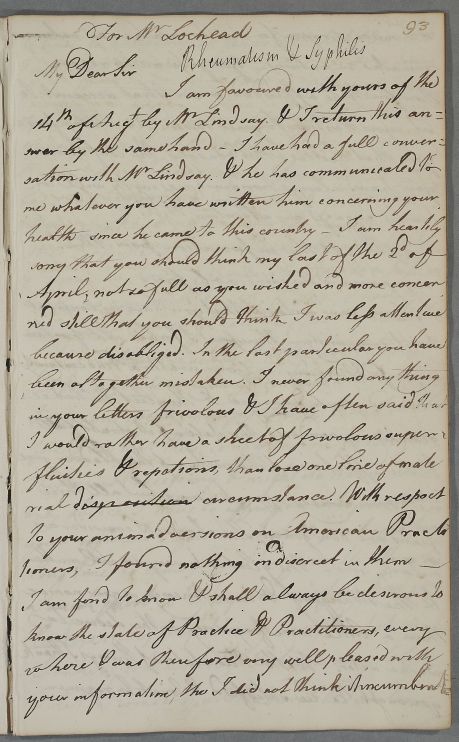 93
For Mr Lochead
Rheumatism & Syphilis
My Dear Sir
I am favoured with yours of the
14th of Augt by Mr Lindsay. & I return this an=
swer by the same hand - I have had a full conver=
sation with Mr Lindsay, & he has communicated to
me whatever you have written him concerning your
health since he came to this country - I am heartily
sorry that you should think my last of the 2d of
April, not so full as you wished and more concer
ned still that you should think I was less attentive
because disobliged. In the last particular you have
been altogether mistaken. I never found any thing
in your letters frivolous & I have often said that
I would rather have a sheet of frivolous super-
fluities & repetions, than lose one line of mate
rial disposition circumstance. With respect
to your animadversions on American Practi
tioners, I found nothing indiscreet in them -
I am fond to know & shall always be desirous to
know the state of Practice & Practitioners, every
where & was therefore very well pleased with
your information, tho I did not think it incumbent